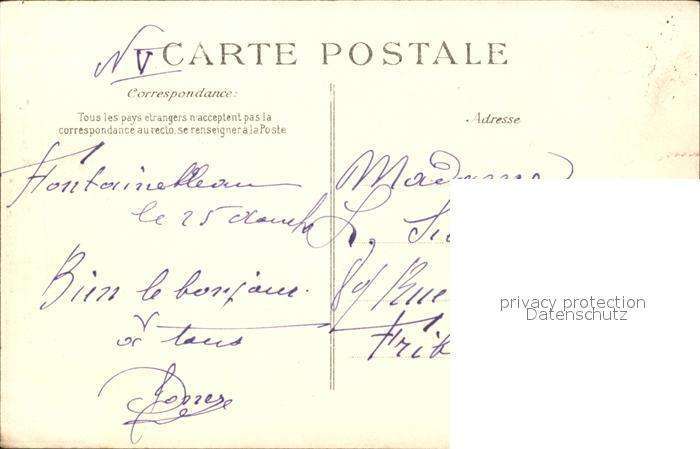 N V
CARTE POSTALE
Correspondance:
Tous les pays etrangers n'acceptent pas la
correspondance au recto, se renseigner à la Poste
Adresse
Fontainebleau
le 25
Bien le bonjour
à tous
Madame
L.
89 Rue
privacy protection
Datenschutz